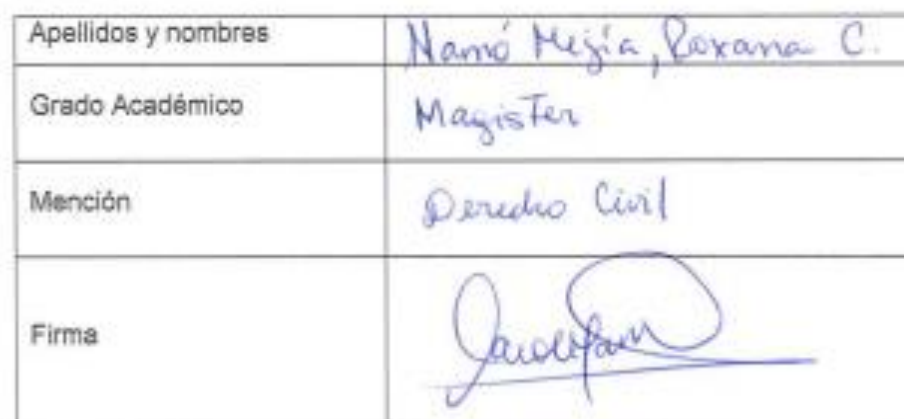 Apellidos y nombres
Mejía, Roxana C.
Grado Académico
Magister
Mención
Derecho Civil
Firma